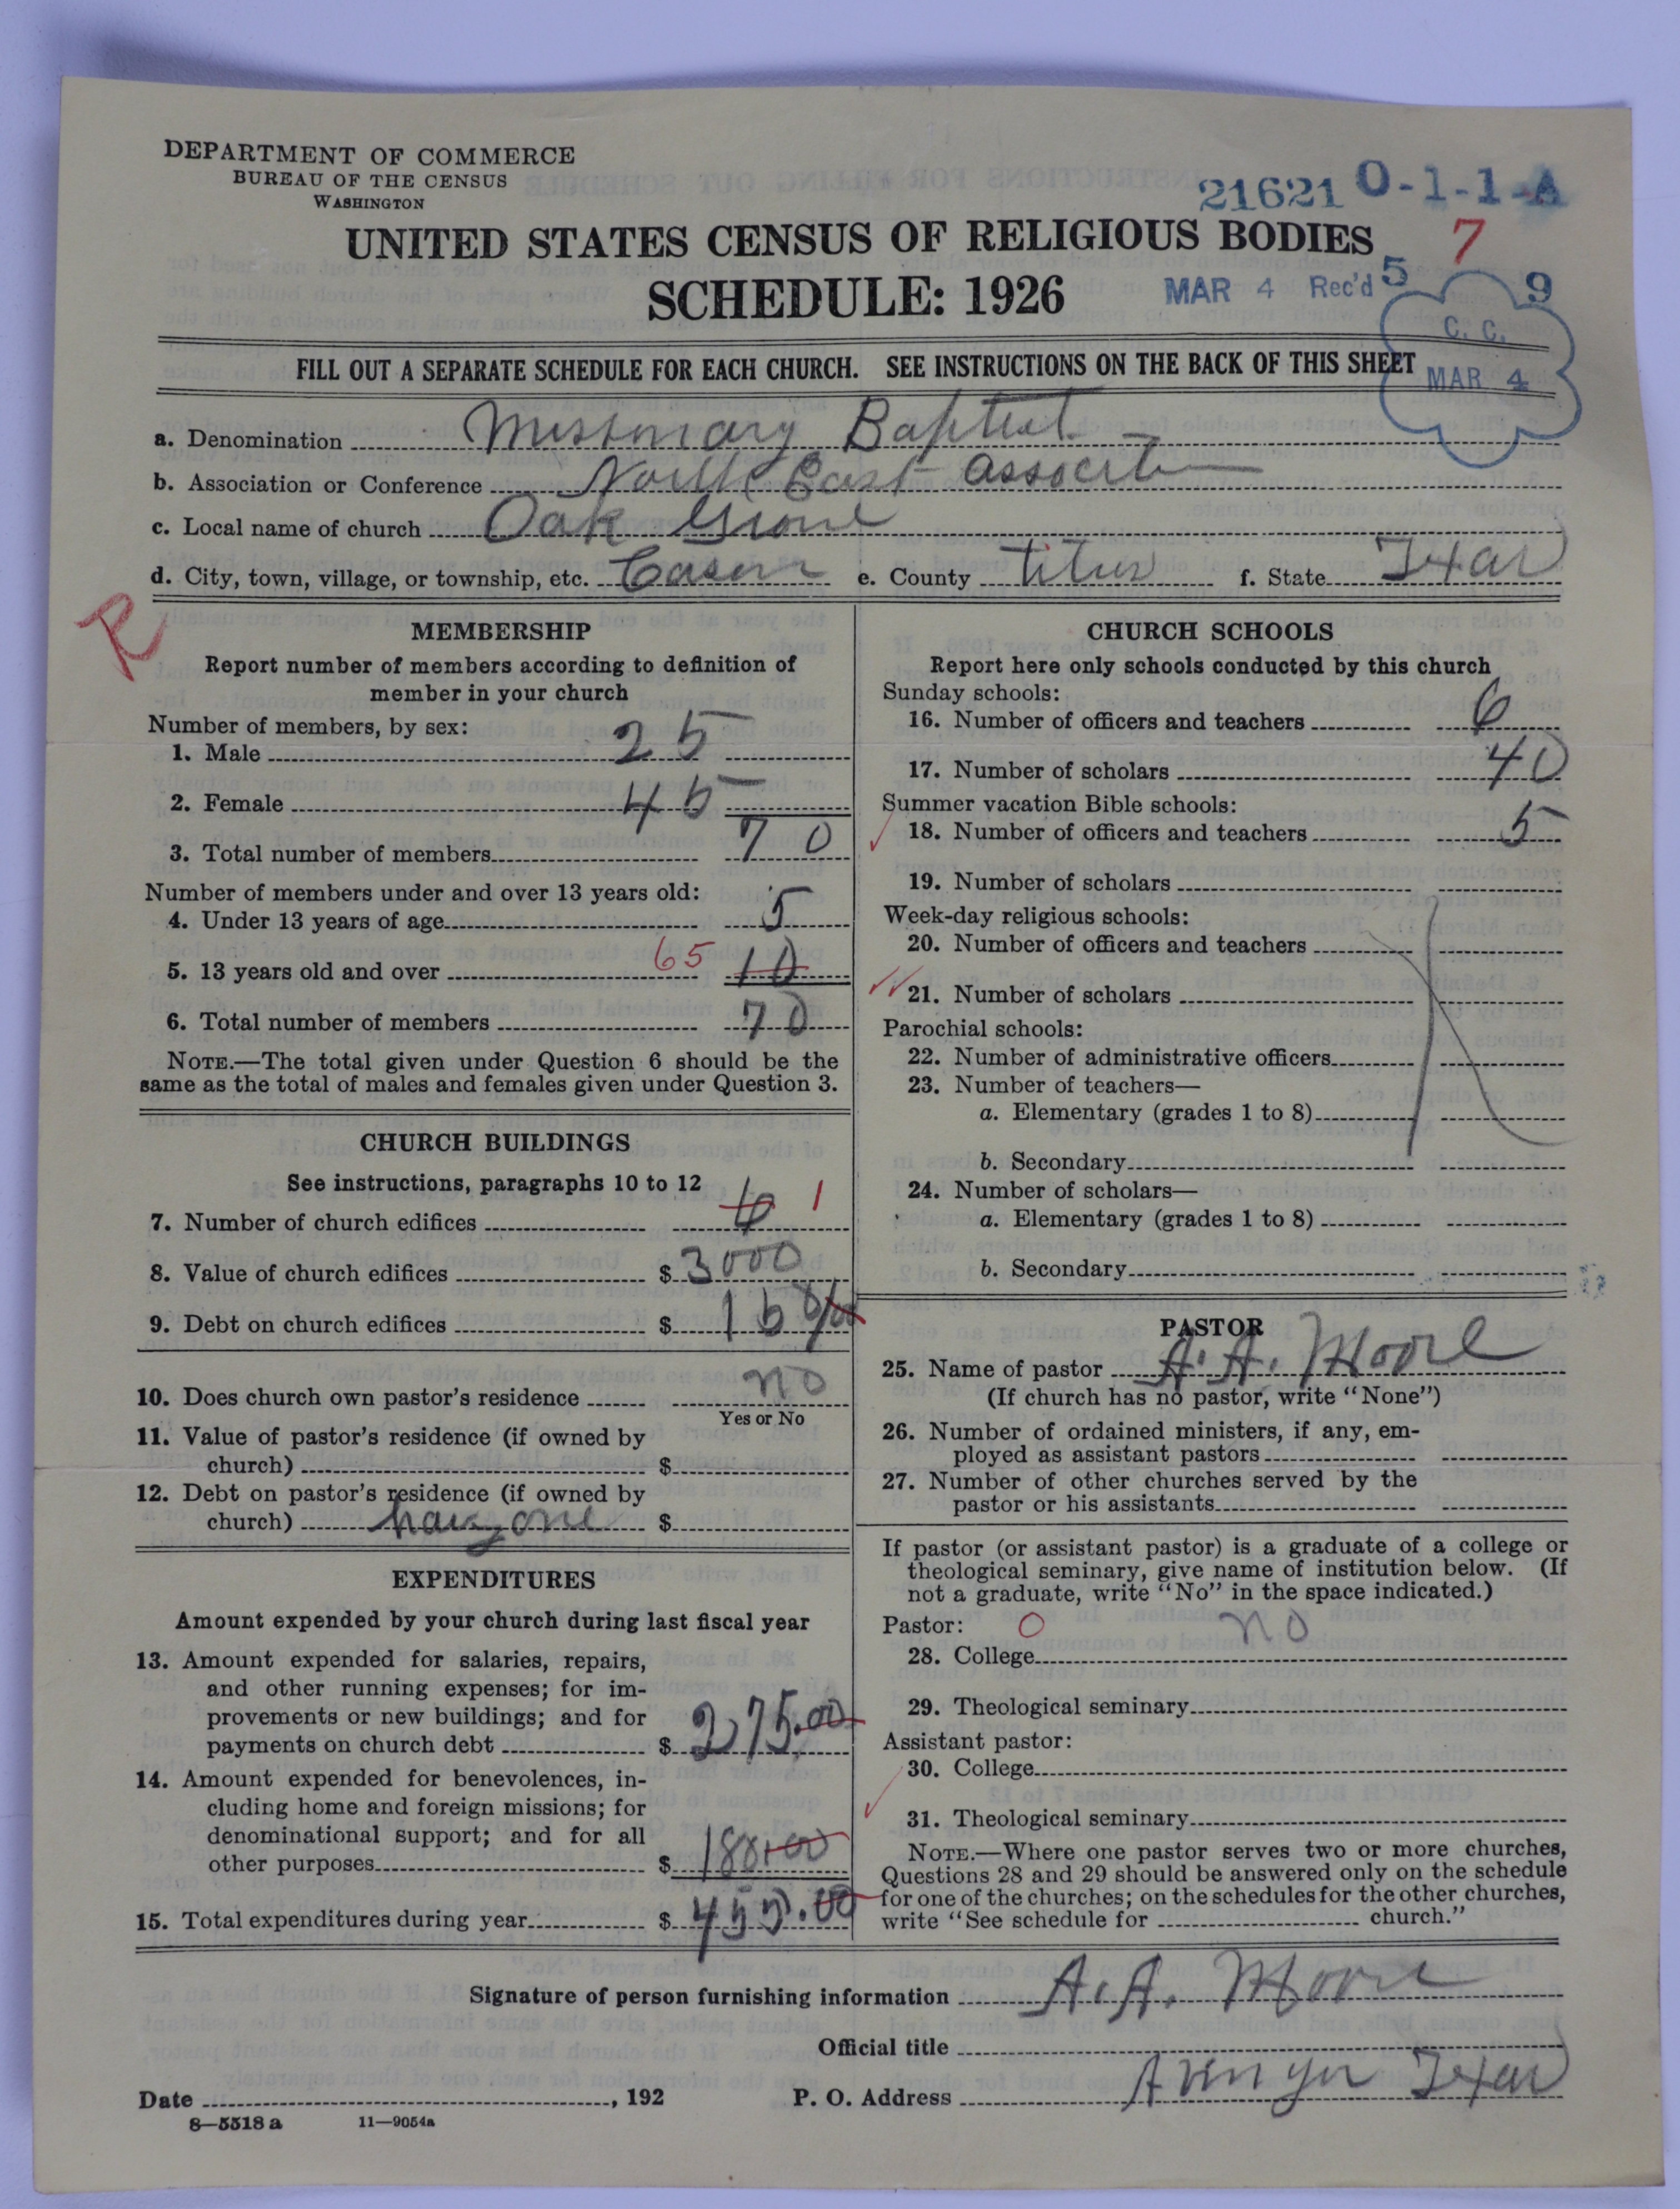 DEPARTMENT OF COMMERCE
BUREAU OF THE CENSUS
WASHINGTON
21621 O-1-1-A
UNITED STATES CENSUS OF RELIGIOUS BODIES
7
SCHEDULE: 1926
MAR 4 Rec'd 5 9
C. C.
MAR 4
FILL OUT A SEPARATE SCHEDULE FOR EACH CHURCH. SEE INSTRUCTIONS ON THE BACK OF THIS SHEET
a. Denomination Missionary Baptist
b. Association or Conference North East
c. Local name of church Oak Grove
d. City, town, village, or township, etc. e. County Titus f. State Texas
R
MEMBERSHIP
Report number of members according to definition of
member in your church
Number of members, by sex:
1. Male 25
2. Female 45
3. Total number of members 70
Number of members under and over 13 years old:
4. Under 13 years of age 5
5. 13 years old and over 65 10
6. Total number of members 70
NOTE.—The total given under Question 6 should be the
same as the total of males and females given under Question 3.
CHURCH BUILDINGS
See instructions, paragraphs 10 to 12
7. Number of church edifices 6 1
8. Value of church edifices $ 3000
9. Debt on church edifices $
10. Does church own pastor's residence no
Yes or No
11. Value of pastor's residence (if owned by
church) $
12. Debt on pastor's residence (if owned by
church) $
EXPENDITURES
Amount expended by your church during last fiscal year
13. Amount expended for salaries, repairs,
and other running expenses; for im-
provements or new buildings; and for
payments on church debt $ 275.00
14. Amount expended for benevolences, in-
cluding home and foreign missions; for
denominational support; and for all
other purposes $ 180.00
15. Total expenditures during year $ 455.00
CHURCH SCHOOLS
Report here only schools conducted by this church
Sunday schools:
16. Number of officers and teachers 6
17. Number of scholars 40
Summer vacation Bible schools:
18. Number of officers and teachers 5
19. Number of scholars
Week-day religious schools:
20. Number of officers and teachers
21. Number of scholars
Parochial schools:
22. Number of administrative officers
23. Number of teachers—
a. Elementary (grades 1 to 8)
b. Secondary
24. Number of scholars—
a. Elementary (grades 1 to 8)
b. Secondary
PASTOR
25. Name of pastor A. A. Moore
(If church has no pastor, write "None")
26. Number of ordained ministers, if any, em-
ployed as assistant pastors
27. Number of other churches served by the
pastor or his assistants
If pastor (or assistant pastor) is a graduate of a college or
theological seminary, give name of institution below. (If
not a graduate, write "No" in the space indicated.)
Pastor: O no
28. College
29. Theological seminary
Assistant pastor:
30. College
31. Theological seminary
NOTE.—Where one pastor serves two or more churches,
Questions 28 and 29 should be answered only on the schedule
for one of the churches; on the schedules for the other churches,
write "See schedule for church."
Signature of person furnishing information A. A. Moore
Official title
Date , 192 P. O. Address Texas
8—5518 a 11—9054a